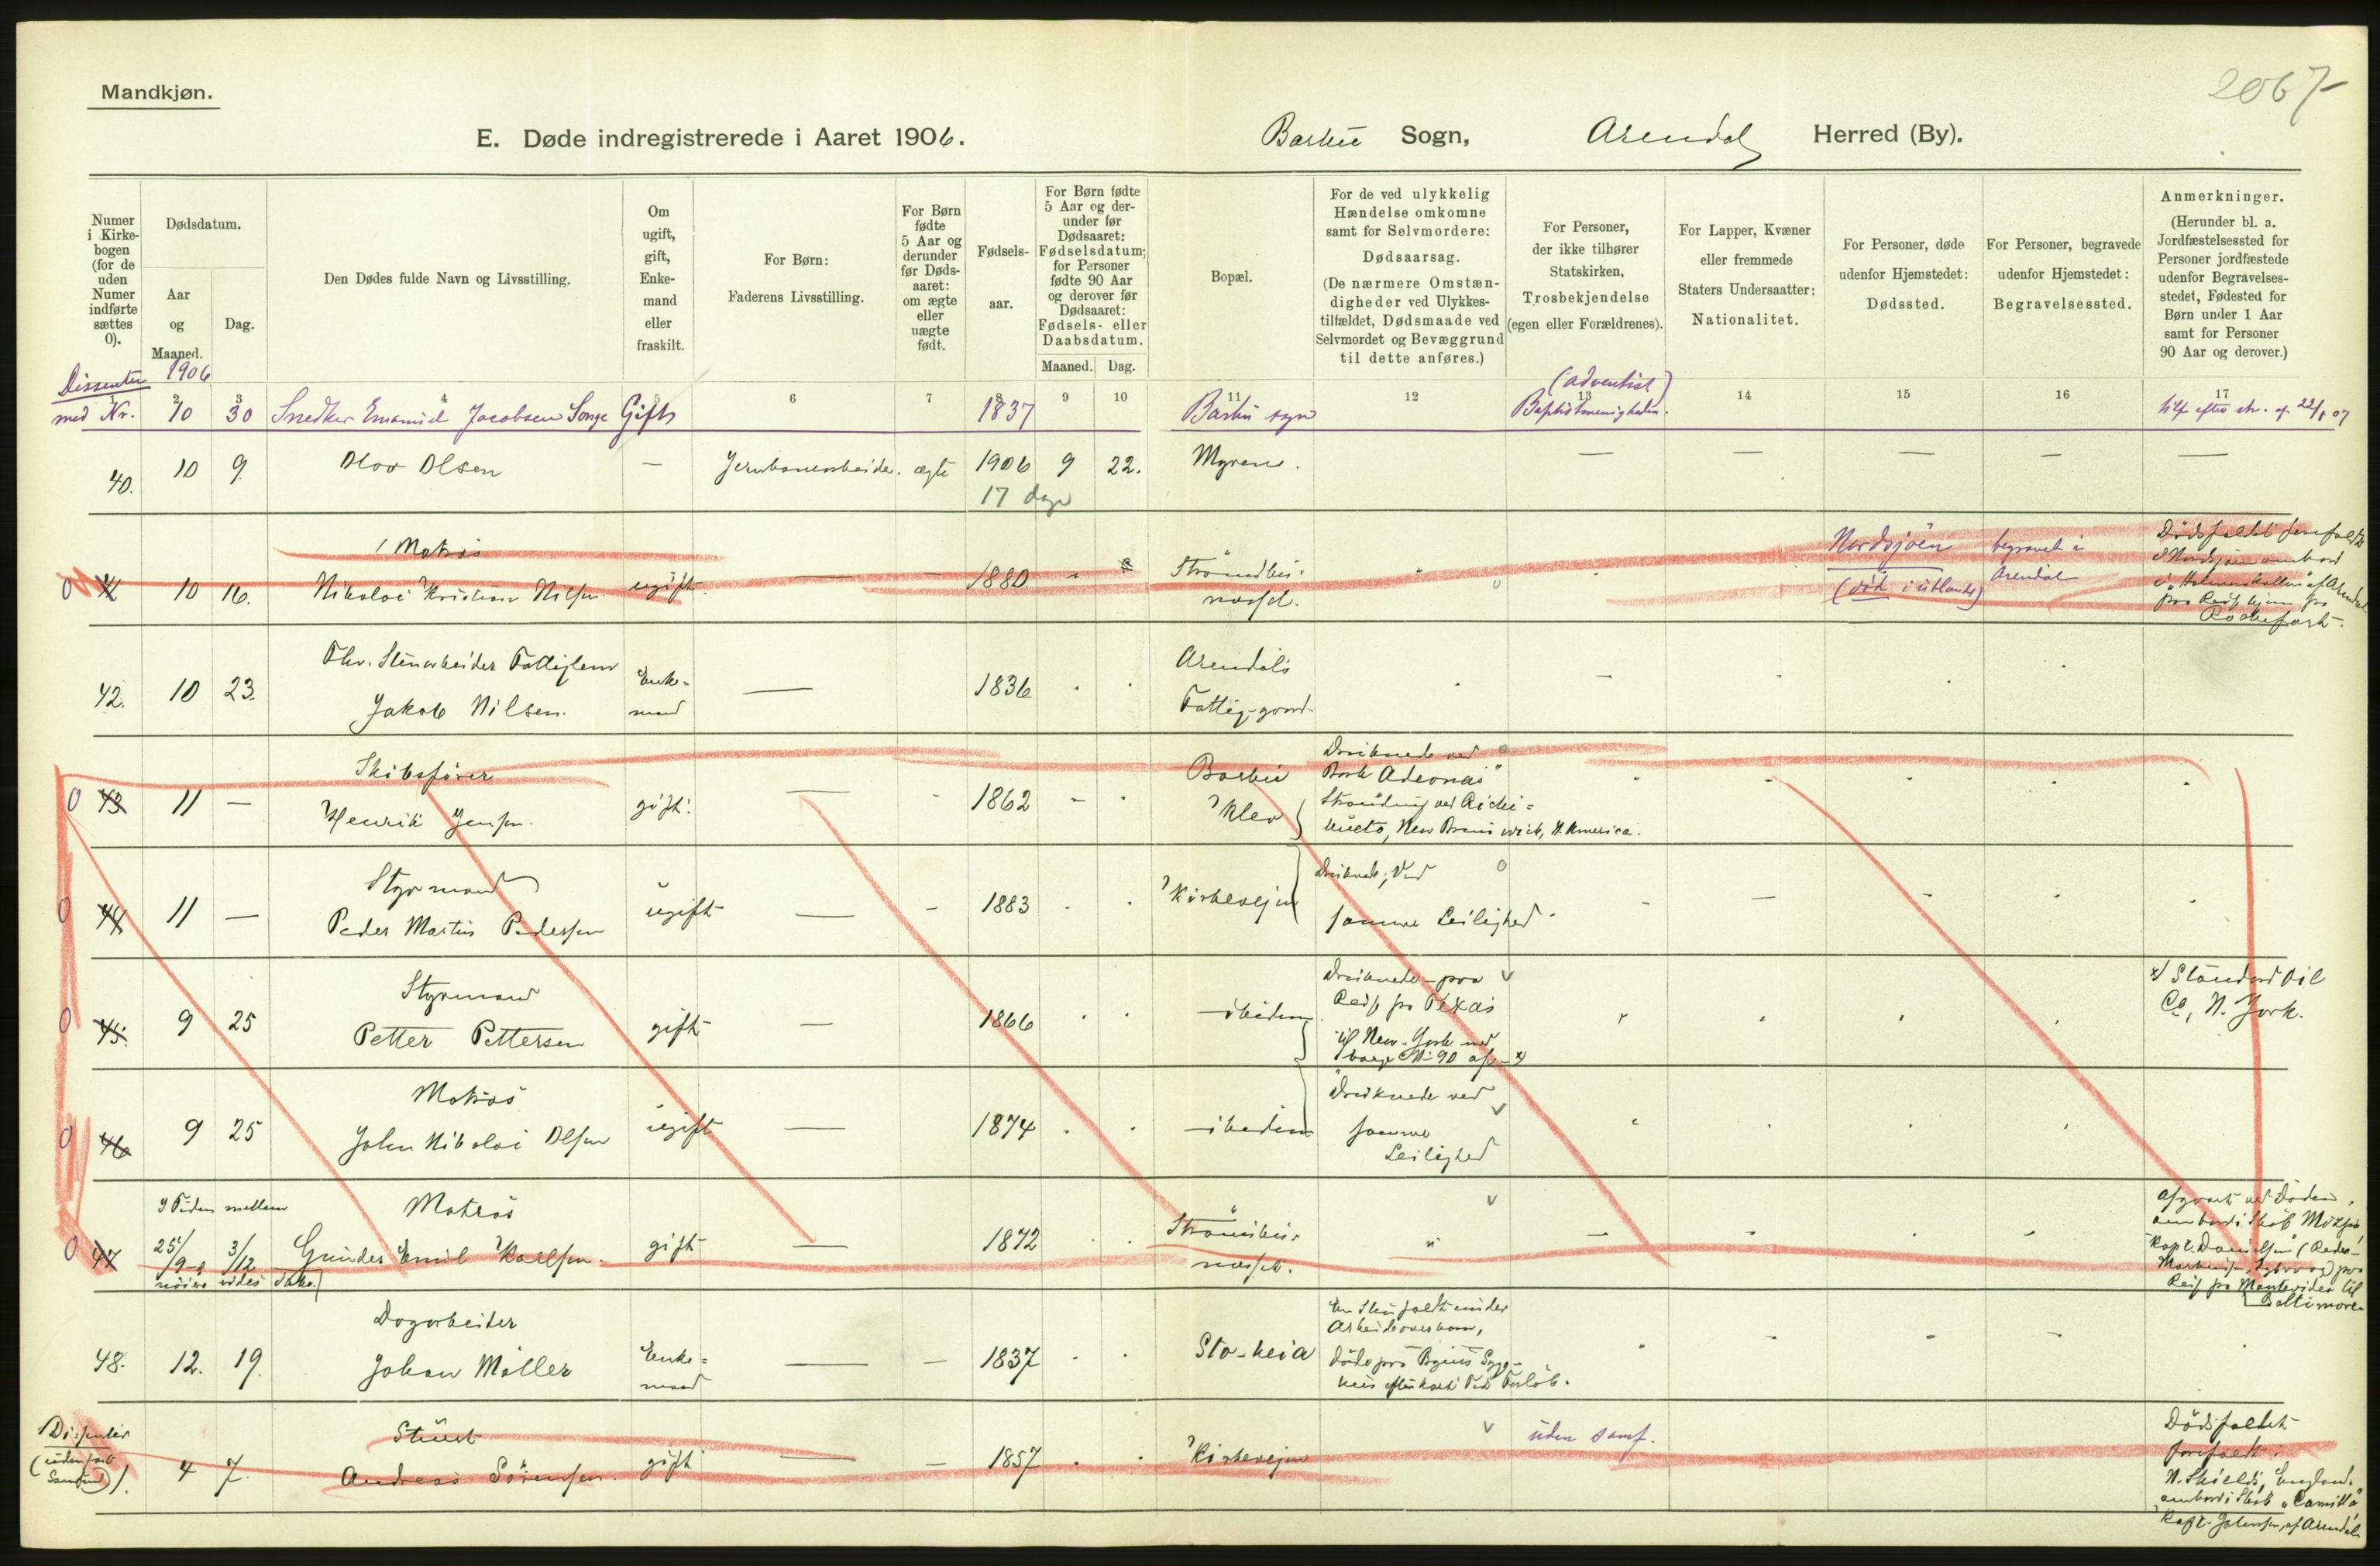 Mandkjøn.
2067
E. Døde indregistrerede i Aaret 1906.
Barbu Sogn, Arendal Herred (By).
Numer i Kirke-bogen (for de uden Numer indførte sættes 0).
Dødsdatum.
Aar og Maaned.
Dag.
Den Dødes fulde Navn og Livsstilling.
Om ugift, gift, Enke-mand eller fraskilt.
For Børn: Faderens Livsstilling.
For Børn fødte 5 Aar og derunder før Døds-aaret: om ægte eller uægte født.
Fødsels-aar.
For Børn fødte 5 Aar og der-under før Dødsaaret: Fødselsdatum; for Personer fødte 90 Aar og derover før Dødsaaret: Fødsels- eller Daabsdatum.
Maaned. Dag.
Bopæl.
For de ved ulykkelig Hændelse omkomne samt for Selvmordere: Dødsaarsag. (De nærmere Omstæn-digheder ved Ulykkes-tilfældet, Dødsmaade ved Selvmordet og Bevæggrund til dette anføres.)
For Personer, der ikke tilhører Statskirken, Trosbekjendelse (egen eller Forældrenes).
For Lapper, Kvæner eller fremmede Staters Undersaatter: Nationalitet.
For Personer, døde udenfor Hjemstedet: Dødssted.
For Personer, begravede udenfor Hjemstedet: Begravelsessted.
Anmerkninger. (Herunder bl. a. Jordfæstelsessted for Personer jordfæstede udenfor Begravelses-stedet, Fødested for Børn under 1 Aar samt for Personer 90 Aar og derover.)
1906
2 3 4 5 6 7 8 9 10 11 12 13 14 15 16 17
Dissenter
med Nr. 10 30 Snedker Emanuel Jacobsen Songe Gift 1837 Barbu sogn (adventist) Baptistmenigheden. efter 22/1 07
40. 10 9 Olav Olsen — Jernbanearbeider. ægte 1906 9 22. Myrene. — — — — —
17 dage
Matros
0 41 10 16. Nikolai Kristian Nilsen ugift. — 1880 Strømsbu-
næsset.
Nordsjöen
(död i utlandet)
begravet i
Arendal
Dödsfaldet forefaldt
i Nordsjöen ombord
i "Holmenkollen" af Arendal
paa Reise hjem fra
Rochefort.
Fhv. Stenarbeider Fattiglem
42. 10 23. Jakob Nilsen. Enke-
mand — 1836 Arendals
Fattig-gaard.
Skibsfører
0 43 11 — Henrik Jensen. gift. — 1862 Barbu
Klev
Druknede ved
Bark "Adeonas"
Stranding ved Richi-
bucto, New Brunswick, N. America.
Styrmand
0 44 11 — Peder Martin Pedersen ugift — 1883 Kirkeveien Druknede, ved
samme Leilighed.
Styrmand
0 45. 9 25 Petter Pettersen gift — 1866 ibidem
Druknede paa
Reise fra Texas
til New-York med
barge No 90 af x)
x) Standard Oil
Co, N. York.
Matros
0 46 9 25 John Nikolai Olsen ugift — 1874 ibidem
Druknede ved
samme
Leilighed
I Tiden mellem Matros
0 47 25/9 - 3/12 Gunder Emil Karlsen. gift — 1872 Strømsbu-
næsset.
Afgaaet ved Döden
ombord i Skib
Kapt. Danielsen (Reder-
paa
Reise fra Montevideo til
Baltimore.
Dagarbeider
48. 12. 19. Johan Møller Enke-
mand — 1837 Sto-heia
Et Skur faldt under
Arbeide over ham,
døde paa Byens Syge-
hus efter kort Tids Forløb.
Dissenter
(uden fast
Samfund). 4 7. Stuert
Andreas Sörensen. gift — 1857 Kirkeveien uden samf.
Dödsfaldet
forefaldt i
N. Shields, England.
ombord i Skib "Camilla"
Kapt. Johnsen, af Arendal